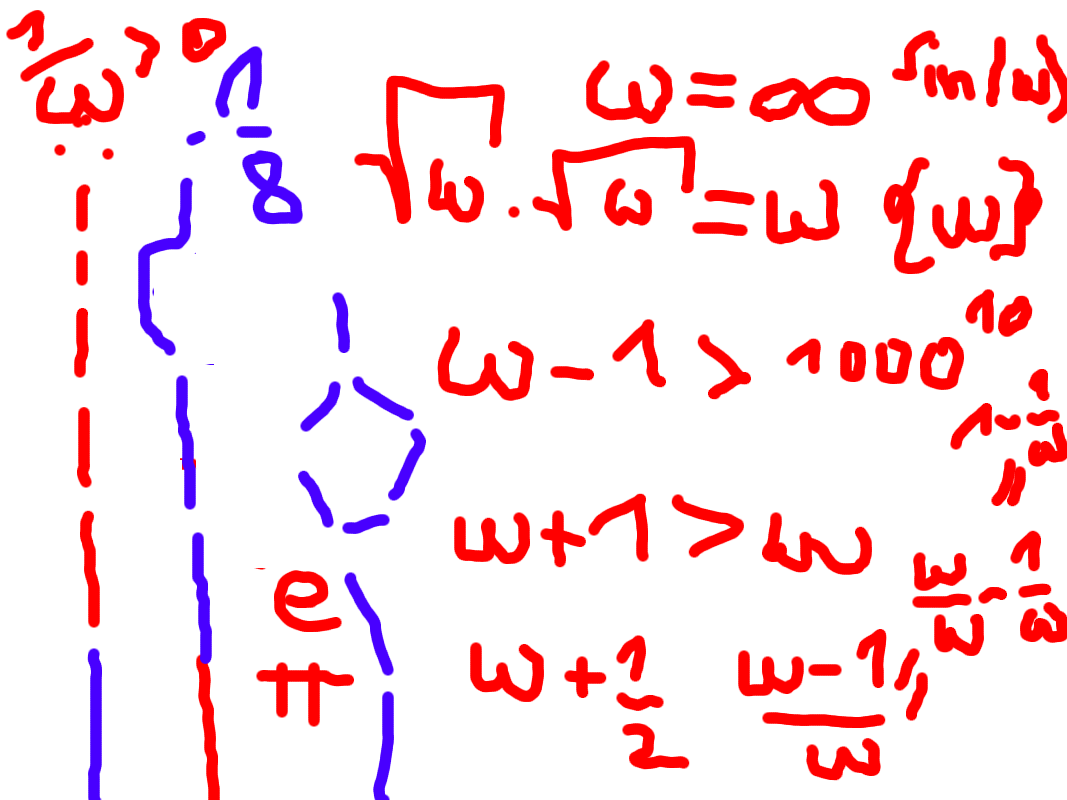 1/ω > 0
1/8
ω = ∞ sin(ω)
√ω · √ω = ω {ω}
ω - 1 > 1000^10
1 - 1/ω
"
ω + 1 > ω
ω/ω - 1/ω
e
π
ω + 1/2
(ω - 1)/ω "